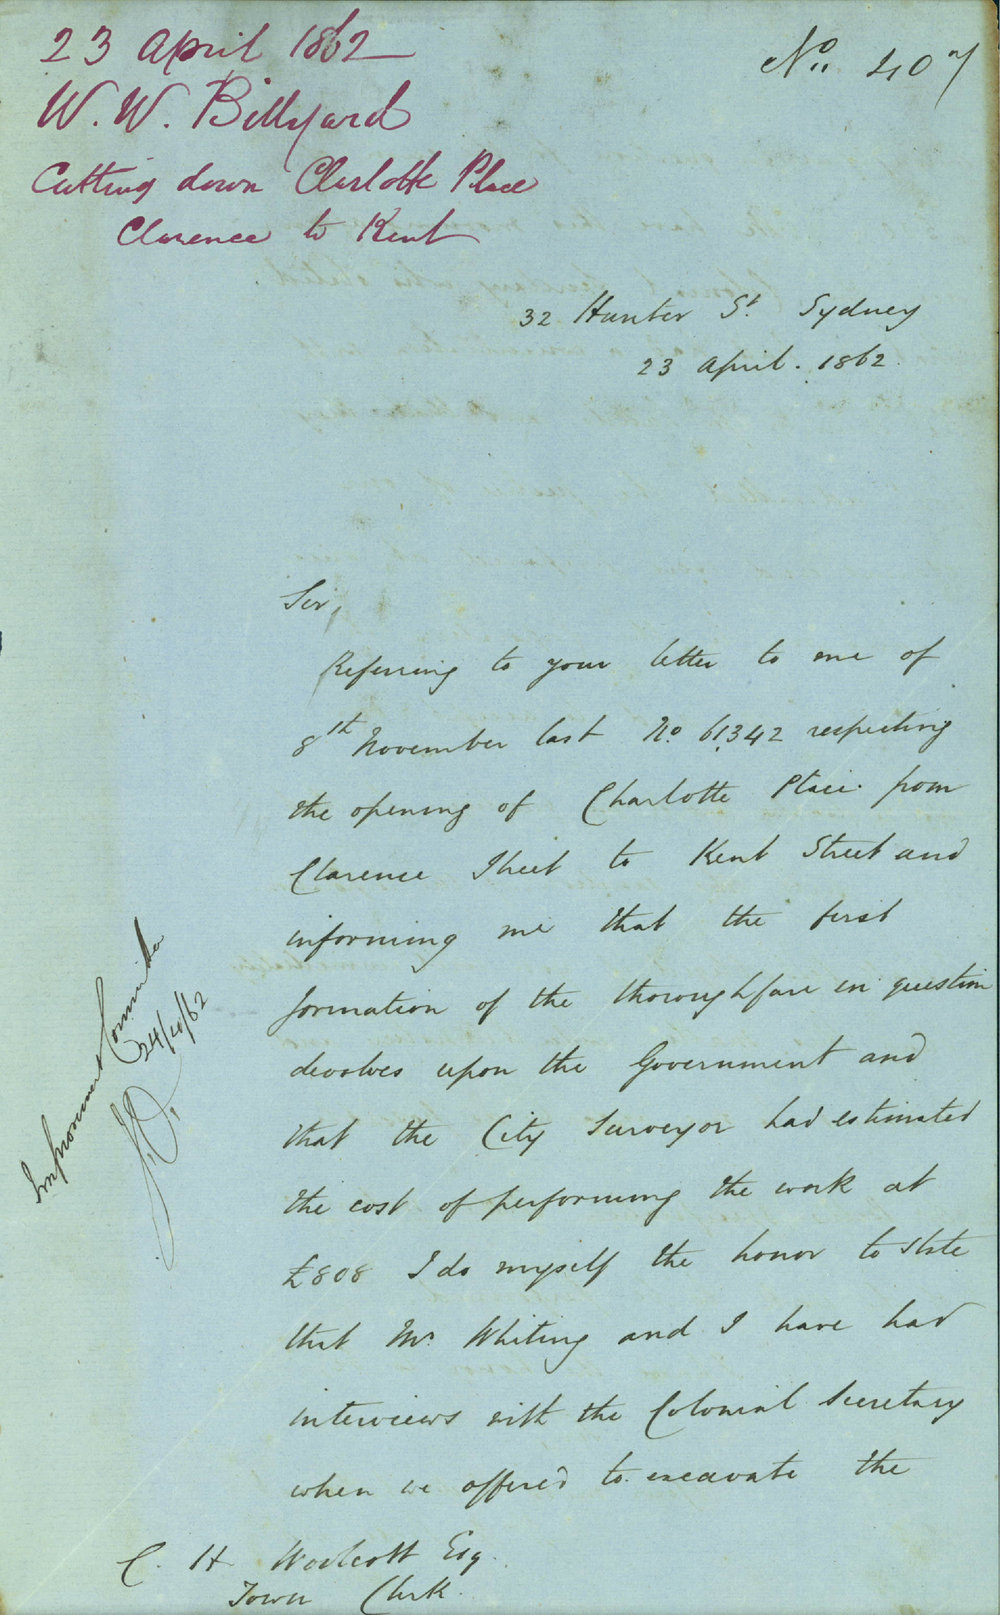 23 April 1862
W. W. Billyard
Cutting down Charlotte Place
Clarence to Kent
No. 407
32 Hunter St. Sydney
23 April. 1862.
Sir,
Referring to your letter to me of
8th November last No. 61.342 respecting
the opening of Charlotte Place from
Clarence Street to Kent Street and
informing me that the first
formation of the thoroughfare in question
devolves upon the Government and
that the City Surveyor had estimated
the cost of performing the work at
£808 I do myself the honor to state
that Mr. Whiting and I have had
interviews with the Colonial Secretary
when we offered to excavate the
C. H. Woolcott Esq.
Town Clerk.
Improvement Committee
24/4/62